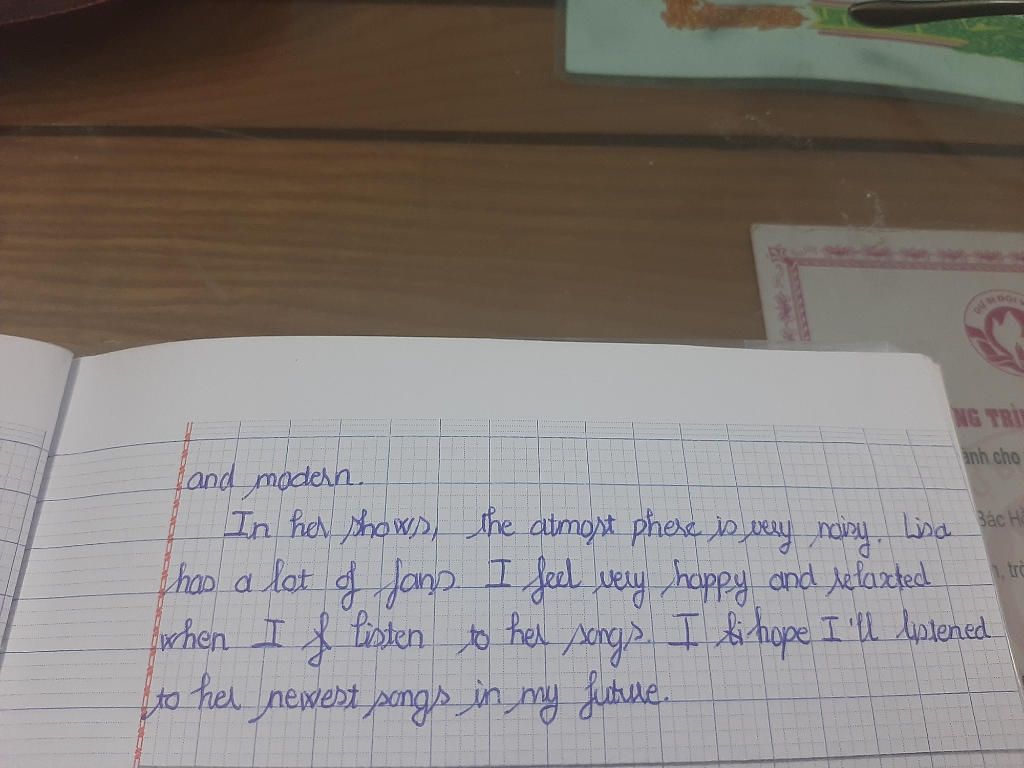 and modern.
In her shows, the atmost phere is very noisy. Lisa
has a lot of fans. I feel very happy and relaxted
when I listen to her songs. I hope I'll listened
to her newest songs in my future.
NG TRÌ
ành cho
Bác H